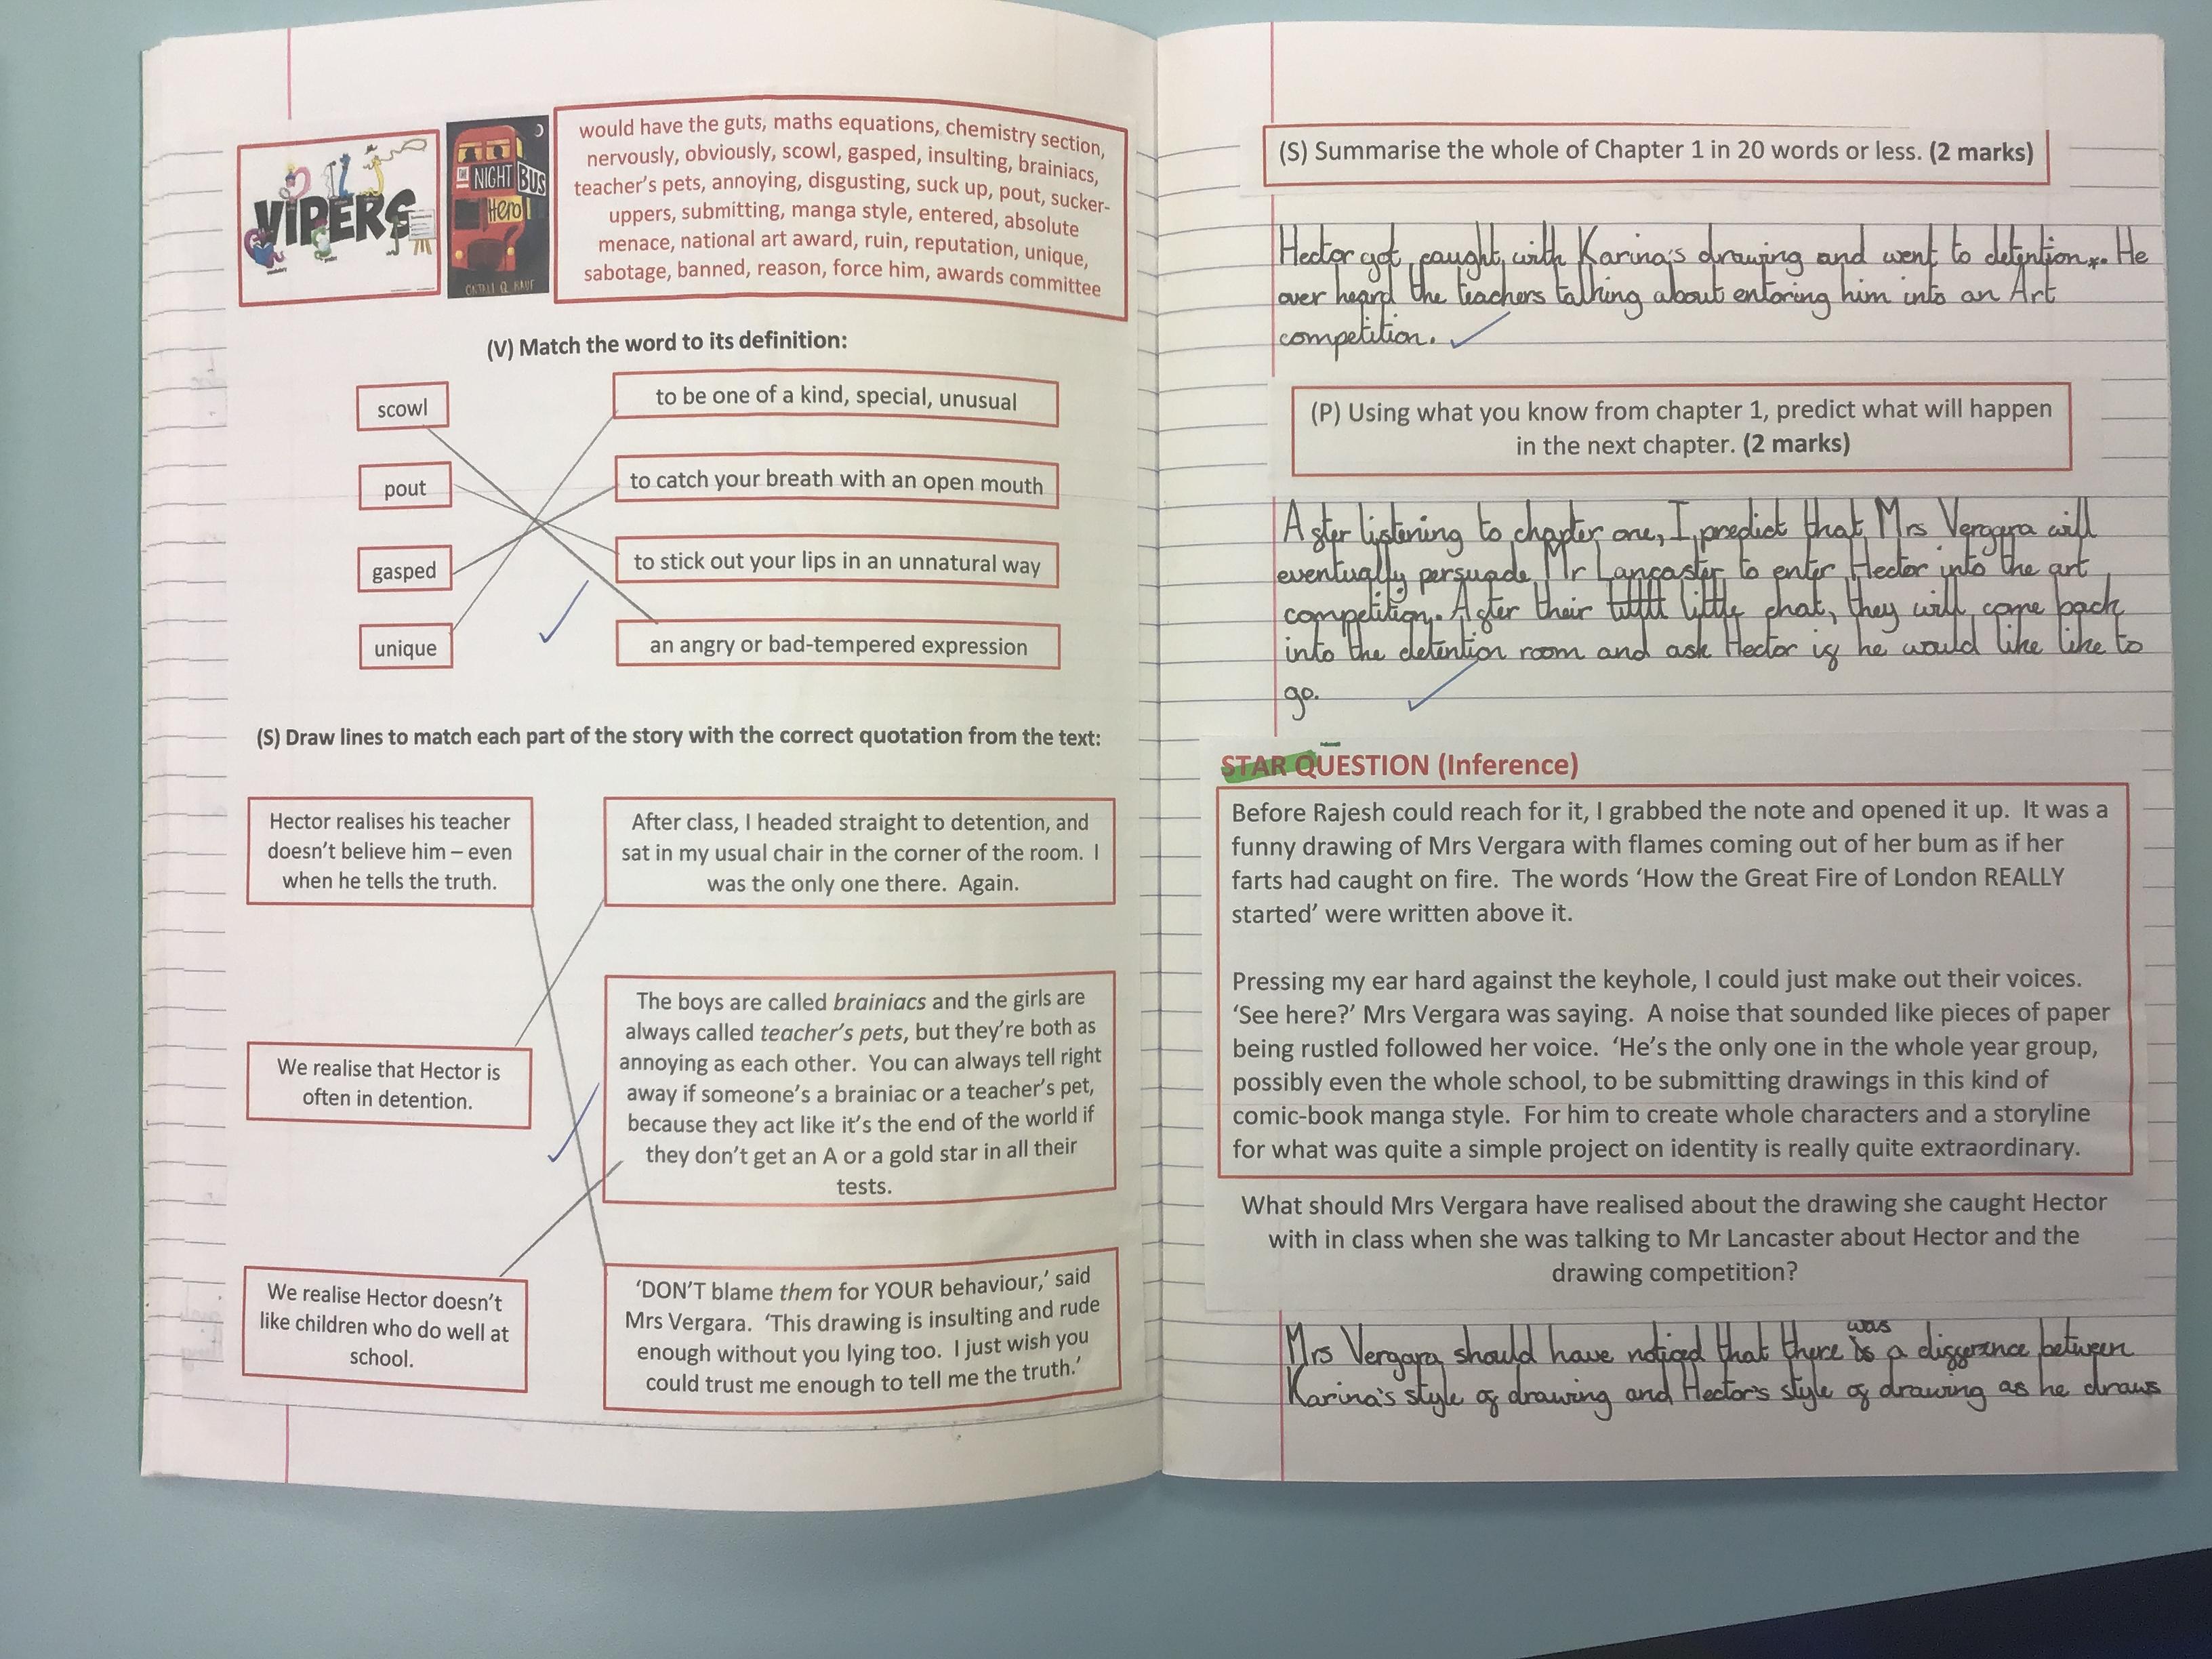 VIPERS
THE NIGHT BUS
Hero
ONJALI Q. RAÚF
would have the guts, maths equations, chemistry section,
nervously, obviously, scowl, gasped, insulting, brainiacs,
teacher's pets, annoying, disgusting, suck up, pout, sucker-
uppers, submitting, manga style, entered, absolute
menace, national art award, ruin, reputation, unique,
sabotage, banned, reason, force him, awards committee
(V) Match the word to its definition:
scowl
pout
gasped
unique
to be one of a kind, special, unusual
to catch your breath with an open mouth
to stick out your lips in an unnatural way
an angry or bad-tempered expression
(S) Draw lines to match each part of the story with the correct quotation from the text:
Hector realises his teacher
doesn't believe him – even
when he tells the truth.
We realise that Hector is
often in detention.
We realise Hector doesn't
like children who do well at
school.
After class, I headed straight to detention, and
sat in my usual chair in the corner of the room. I
was the only one there. Again.
The boys are called brainiacs and the girls are
always called teacher's pets, but they're both as
annoying as each other. You can always tell right
away if someone's a brainiac or a teacher's pet,
because they act like it's the end of the world if
they don't get an A or a gold star in all their
tests.
'DON'T blame them for YOUR behaviour,' said
Mrs Vergara. 'This drawing is insulting and rude
enough without you lying too. I just wish you
could trust me enough to tell me the truth.'
(S) Summarise the whole of Chapter 1 in 20 words or less. (2 marks)
Hector got caught with Karina's drawing and went to detention. He
over heard the teachers talking about entering him into an Art
competition.
(P) Using what you know from chapter 1, predict what will happen
in the next chapter. (2 marks)
After listening to chapter one, I predict that Mrs Vergara will
eventually persuade Mr Lancaster to enter Hector into the art
competition. After their little chat, they will come back
into the detention room and ask Hector if he would like like to
go.
STAR QUESTION (Inference)
Before Rajesh could reach for it, I grabbed the note and opened it up. It was a
funny drawing of Mrs Vergara with flames coming out of her bum as if her
farts had caught on fire. The words 'How the Great Fire of London REALLY
started' were written above it.
Pressing my ear hard against the keyhole, I could just make out their voices.
'See here?' Mrs Vergara was saying. A noise that sounded like pieces of paper
being rustled followed her voice. 'He's the only one in the whole year group,
possibly even the whole school, to be submitting drawings in this kind of
comic-book manga style. For him to create whole characters and a storyline
for what was quite a simple project on identity is really quite extraordinary.
What should Mrs Vergara have realised about the drawing she caught Hector
with in class when she was talking to Mr Lancaster about Hector and the
drawing competition?
Mrs Vergara should have noticed that there was a difference between
Karina's style of drawing and Hector's style of drawing as he draws